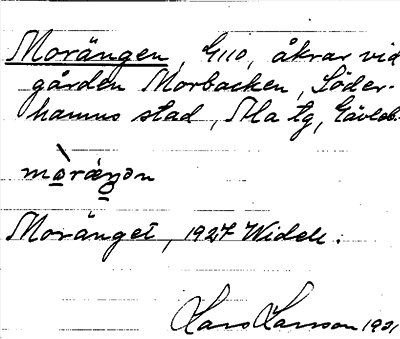 Morängen, G110, åkrar vid
gården Morbacken, Söder-
hamns stad, Ala tg, Gävleb.
Moränget, 1927 Widell.
Lars Larsson 1931